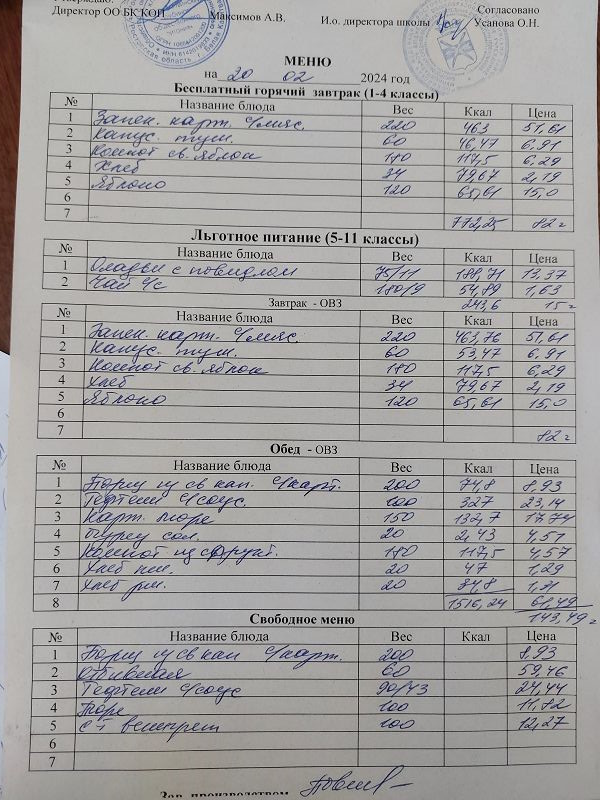 Утверждаю:
Директор ОО БК КОП Максимов А.В.
Согласовано
И.о. директора школы Усанова О.Н.
МЕНЮ
на 20 02 2024 год
Бесплатный горячий завтрак (1-4 классы)
№ Название блюда Вес Ккал Цена
1 Запек. карт. с/мяс. 220 463 51,61
2 Капус. туш. 60 46,47 6,91
3 Компот св. яблок 180 117,5 6,29
4 Хлеб 34 79,67 2,19
5 Яблоко 120 65,61 15,0
6
7 772,25 82 =
Льготное питание (5-11 классы)
№ Название блюда Вес Ккал Цена
1 Оладьи с повидлом 75/11 188,71 13,37
2 Чай с/с 180/9 54,89 1,63
243,6 15 =
Завтрак - ОВЗ
№ Название блюда Вес Ккал Цена
1 Запек. карт. с/мяс. 220 463,76 51,61
2 Капус. туш. 60 53,47 6,91
3 Компот св. яблок 180 117,5 6,29
4 Хлеб 34 79,67 2,19
5 Яблоко 120 65,61 15,0
6
7 82 =
Обед - ОВЗ
№ Название блюда Вес Ккал Цена
1 Борщ из св кап. с/карт. 200 74,8 8,93
2 Тефтели с/соус. 100 327 23,14
3 Карт. пюре 150 132,7 17,74
4 Огурец сол. 20 2,43 4,51
5 Компот из с/фрукт. 180 117,5 4,57
6 Хлеб пш. 20 47 1,29
7 Хлеб рж. 20 84,8 1,31
8 1516,24 61,49
143,49 =
Свободное меню
№ Название блюда Вес Ккал Цена
1 Борщ из св кап с/карт. 200 8,93
2 Отбивная 60 59,46
3 Тефтели с/соус 90/43 24,44
4 Пюре 100 11,82
5 С-т венегрет 100 12,27
6
7
Зав. производством